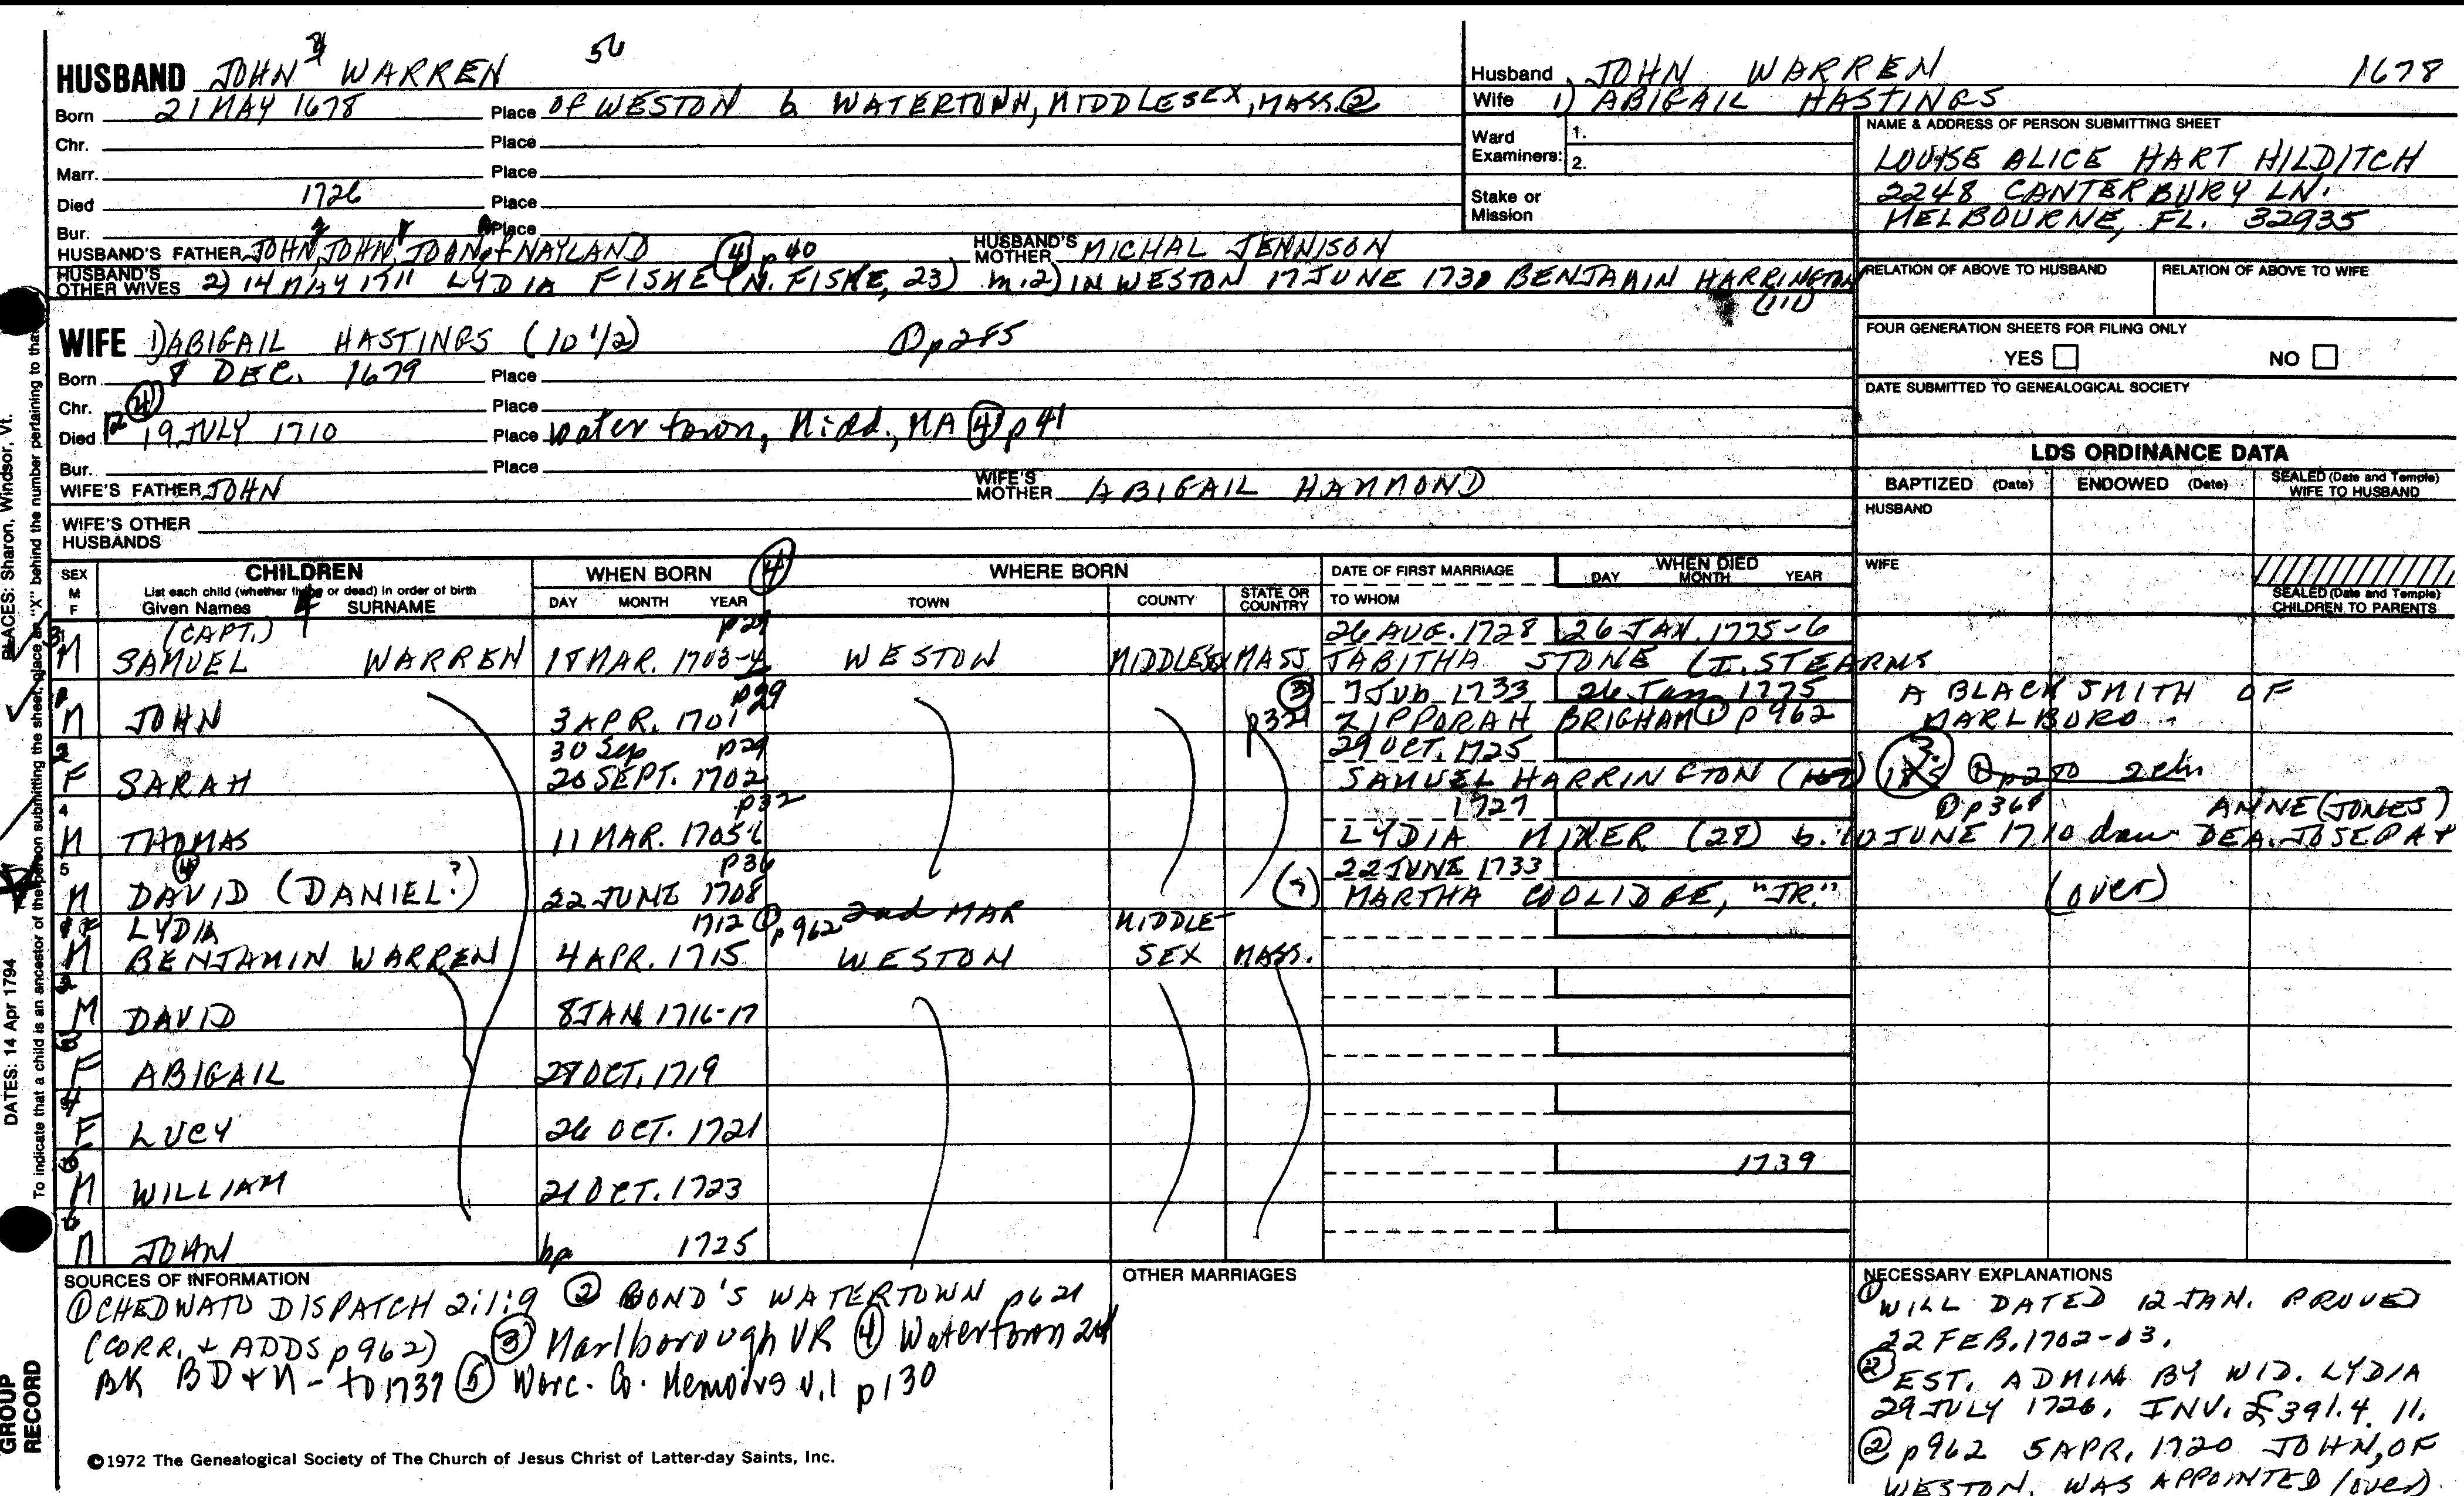 HUSBAND JOHN WARREN 56
Born 21 MAY 1678 Place OF WESTON b WATERTOWN, MIDDLESEX, MASS. ②
Chr. Place
Marr. Place
Died 1726 Place
Bur. Place
HUSBAND'S FATHER JOHN, JOHN, JOHN of NAYLAND ④ p40 HUSBAND'S MOTHER MICHAL JENNISON
HUSBAND'S OTHER WIVES 2) 14 MAY 1711 LYDIA FISKE (N. FISKE, 23) m. 2) IN WESTON 17 JUNE 1730 BENJAMIN HARRINGTON
(111)
WIFE 1) ABIGAIL HASTINGS (10 1/2) ① p285
Born 8 DEC. 1679 Place
Chr. ④ Place
Died 12 19 JULY 1710 Place Watertown, Midd., MA ④ p41
Bur. Place
WIFE'S FATHER JOHN WIFE'S MOTHER ABIGAIL HAMMOND
WIFE'S OTHER HUSBANDS
Husband JOHN WARREN 1678
Wife 1) ABIGAIL HASTINGS
Ward Examiners: 1.
2.
Stake or Mission
NAME & ADDRESS OF PERSON SUBMITTING SHEET
LOUISE ALICE HART HILDITCH
2248 CANTERBURY LN.
MELBOURNE, FL. 32935
RELATION OF ABOVE TO HUSBAND RELATION OF ABOVE TO WIFE
FOUR GENERATION SHEETS FOR FILING ONLY
YES NO
DATE SUBMITTED TO GENEALOGICAL SOCIETY
LDS ORDINANCE DATA
BAPTIZED (Date) ENDOWED (Date) SEALED (Date and Temple) WIFE TO HUSBAND
HUSBAND
WIFE
SEALED (Date and Temple) CHILDREN TO PARENTS
SEX M F CHILDREN WHEN BORN ④ WHERE BORN DATE OF FIRST MARRIAGE WHEN DIED
List each child (whether living or dead) in order of birth
Given Names SURNAME DAY MONTH YEAR TOWN COUNTY STATE OR COUNTRY TO WHOM DAY MONTH YEAR
(CAPT.) p29 26 AUG. 1728 26 JAN. 1775-6
3 M SAMUEL WARREN 18 MAR. 1703-4 WESTON MIDDLESEX MASS TABITHA STONE (I. STEARNS
p29 ③ 7 Jun 1733 26 Jan 1775 A BLACKSMITH OF
M JOHN 3 APR. 1701 p321 ZIPPORAH BRIGHAM ① p962 MARLBORO
2 30 Sep p29 29 OCT. 1725
F SARAH 20 SEPT. 1702 SAMUEL HARRINGTON
4 p32 1727 ① p368 ANNE (JONES)
M THOMAS 11 MAR. 1705-6 LYDIA MIXER (28) b. 10 JUNE 1710 dau DEA. JOSEPH &
5 ④ p36 22 JUNE 1733
M DAVID (DANIEL?) 22 JUNE 1708 (?) MARTHA COOLIDGE, "JR." (over)
F LYDIA 1712 ① p962 2nd MAR MIDDLE-
M BENJAMIN WARREN 4 APR. 1715 WESTON SEX MASS.
2
M DAVID 8 JAN 1716-17
3
F ABIGAIL 28 OCT. 1719
4
F LUCY 26 OCT. 1721
5 1739
M WILLIAM 21 OCT. 1723
6
M JOHN bp 1725
SOURCES OF INFORMATION
① CHEDWATO DISPATCH 2:1:9 ② BOND'S WATERTOWN p621
(CORR. & ADDS p962) ③ Marlborough VR ④ Watertown 2nd
BK BD & M - to 1737 ⑤ Worc. Co. Memoirs v.1 p130
©1972 The Genealogical Society of The Church of Jesus Christ of Latter-day Saints, Inc.
OTHER MARRIAGES
NECESSARY EXPLANATIONS
① WILL DATED 12 JAN. PROVED
22 FEB. 1702-03.
② EST. ADMIN BY WID. LYDIA
29 JULY 1726. INV. £391.4.11.
② p962 5 APR. 1720 JOHN, OF
WESTON, WAS APPOINTED (over)
PLACES: Sharon, Windsor, Vt.
DATES: 14 Apr 1794
To indicate that a child is an ancestor of the person submitting the sheet, place an "X" behind the number pertaining to that
GROUP
RECORD